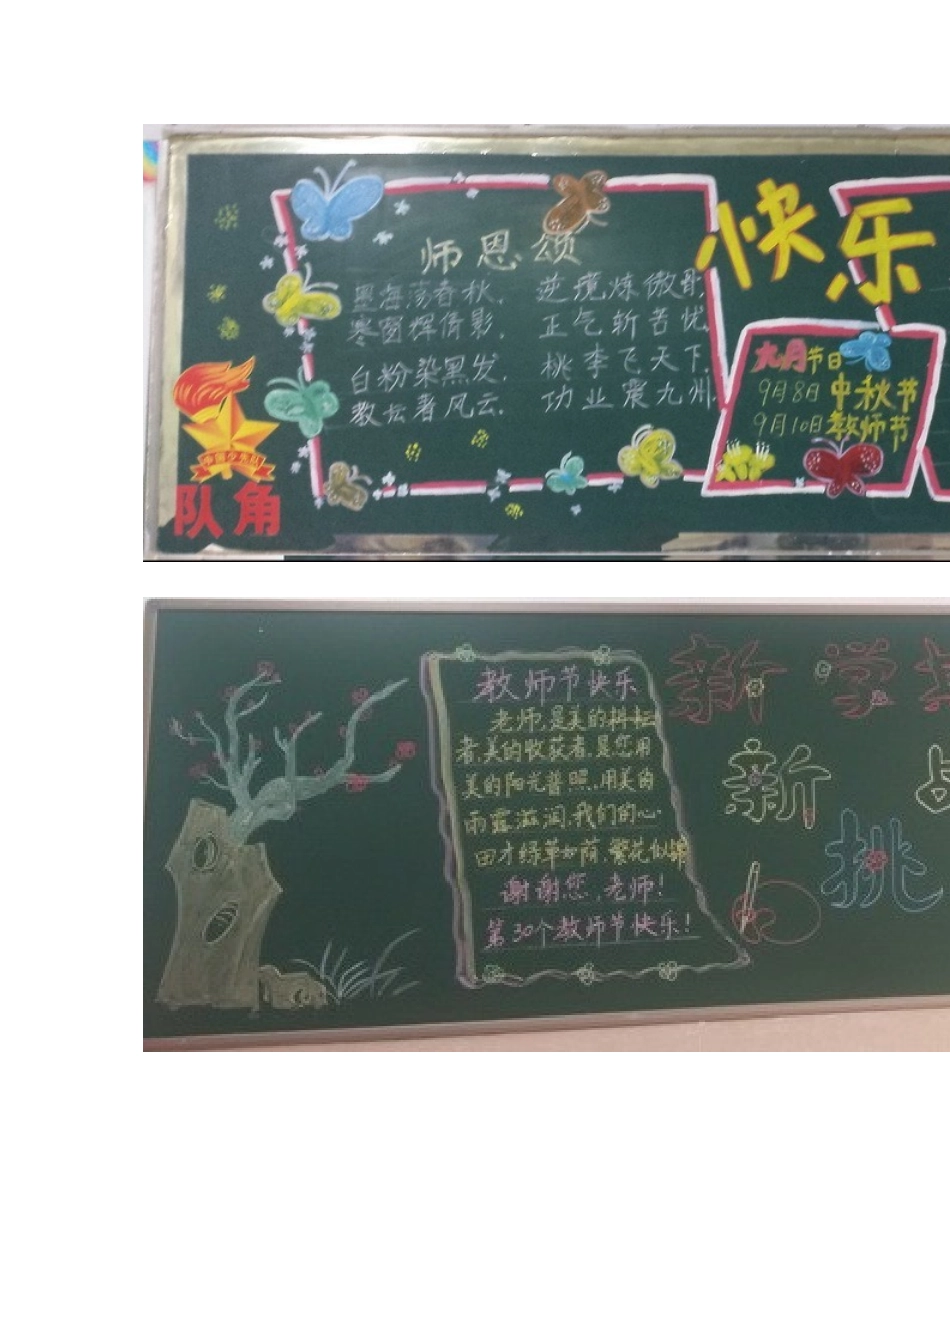 快乐
师恩颂
墨海荡春秋,
寒窗辉倩影,
白粉染黑发,
教坛著风云,
逆境炼微形,
正气斩苦忧,
桃李飞天下,
功业震九州.
九月节日
9月8日 中秋节
9月10日 教师节
中国少先队
队角
教师节快乐
老师,是美的耕耘
者,美的收获者.是您用
美的阳光普照,用美的
雨露滋润,我们的心
田才绿草如荫,繁花似锦
谢谢您,老师!
第30个教师节快乐!
新学
新
挑